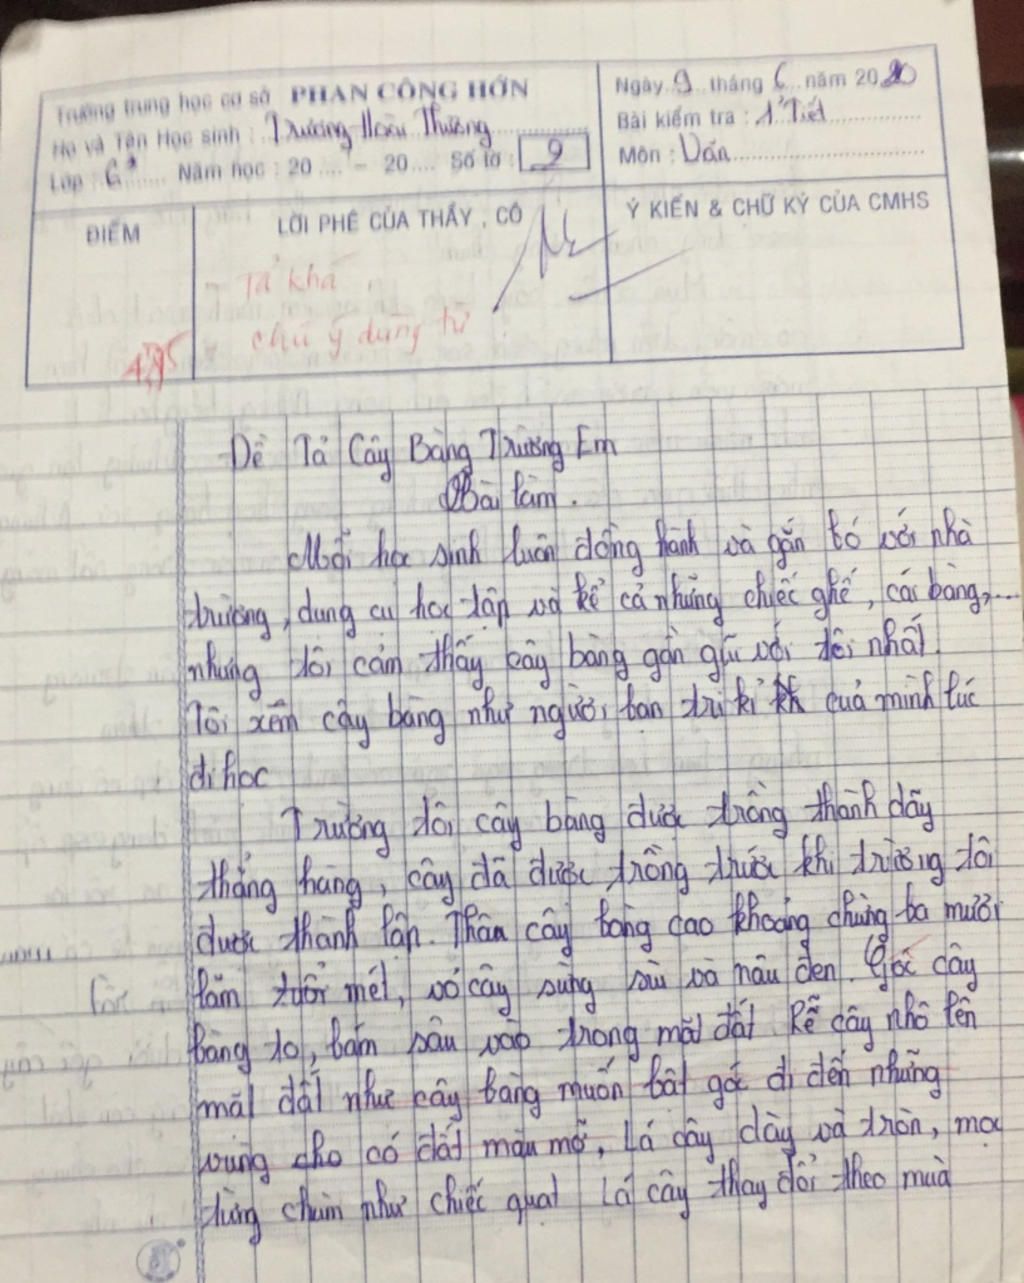 Trường trung học cơ sở PHAN CÔNG HỚN
Họ và Tên Học sinh : Trương Hoài Thương
Lớp : 6 Năm học : 20 .... - 20.... Số tờ : 9
Ngày 9 tháng 6 năm 2020
Bài kiểm tra : 1 Tiết
Môn : Văn
ĐIỂM
LỜI PHÊ CỦA THẦY , CÔ
Ý KIẾN & CHỮ KÝ CỦA CMHS
- Tả khá
- chú ý dùng từ
Đề Tả Cây Bàng Trường Em
Bài làm .
Mỗi học sinh luôn đồng hành và gắn bó với nhà
trường, dụng cụ học tập và kể cả những chiếc ghế, cái bàng,...
nhưng tôi cảm thấy cây bàng gần gũi với tôi nhất.
Tôi xem cây bàng như người bạn tri kỉ của mình lúc
đi học
Trường tôi cây bàng được trồng thành dãy
thẳng hàng, cây đã được trồng trước khi trường tôi
được thành lập. Thân cây bàng cao khoảng chừng ba mươi
lăm mét, vỏ cây sừng sù và nâu đen. Gốc cây
bàng to, bám sâu vào trong mặt đất Rễ cây nhô lên
mặt đất như cây bàng muốn bật gốc đi đến những
vùng cho có đất màu mỡ, Lá cây dày và tròn, mọc
từng chùm như chiếc quạt Lá cây thay đổi theo mùa